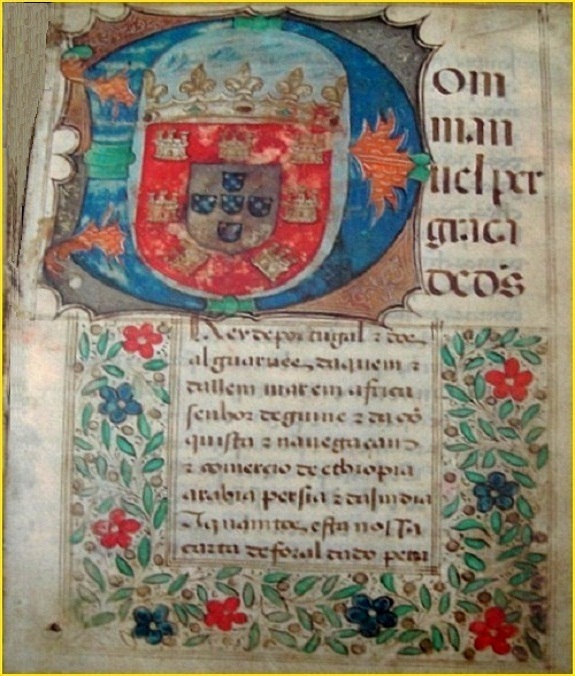 Dom
man
uel per
graça
de d's
Rey de portugal z dos
alguarues daquem z
dallem mar em africa
senhor de guine z da cō
quista z nauegacam
z comercio de ethiopia
arabia persia z da india
A quantos esta nossa
carta de foral dado pera